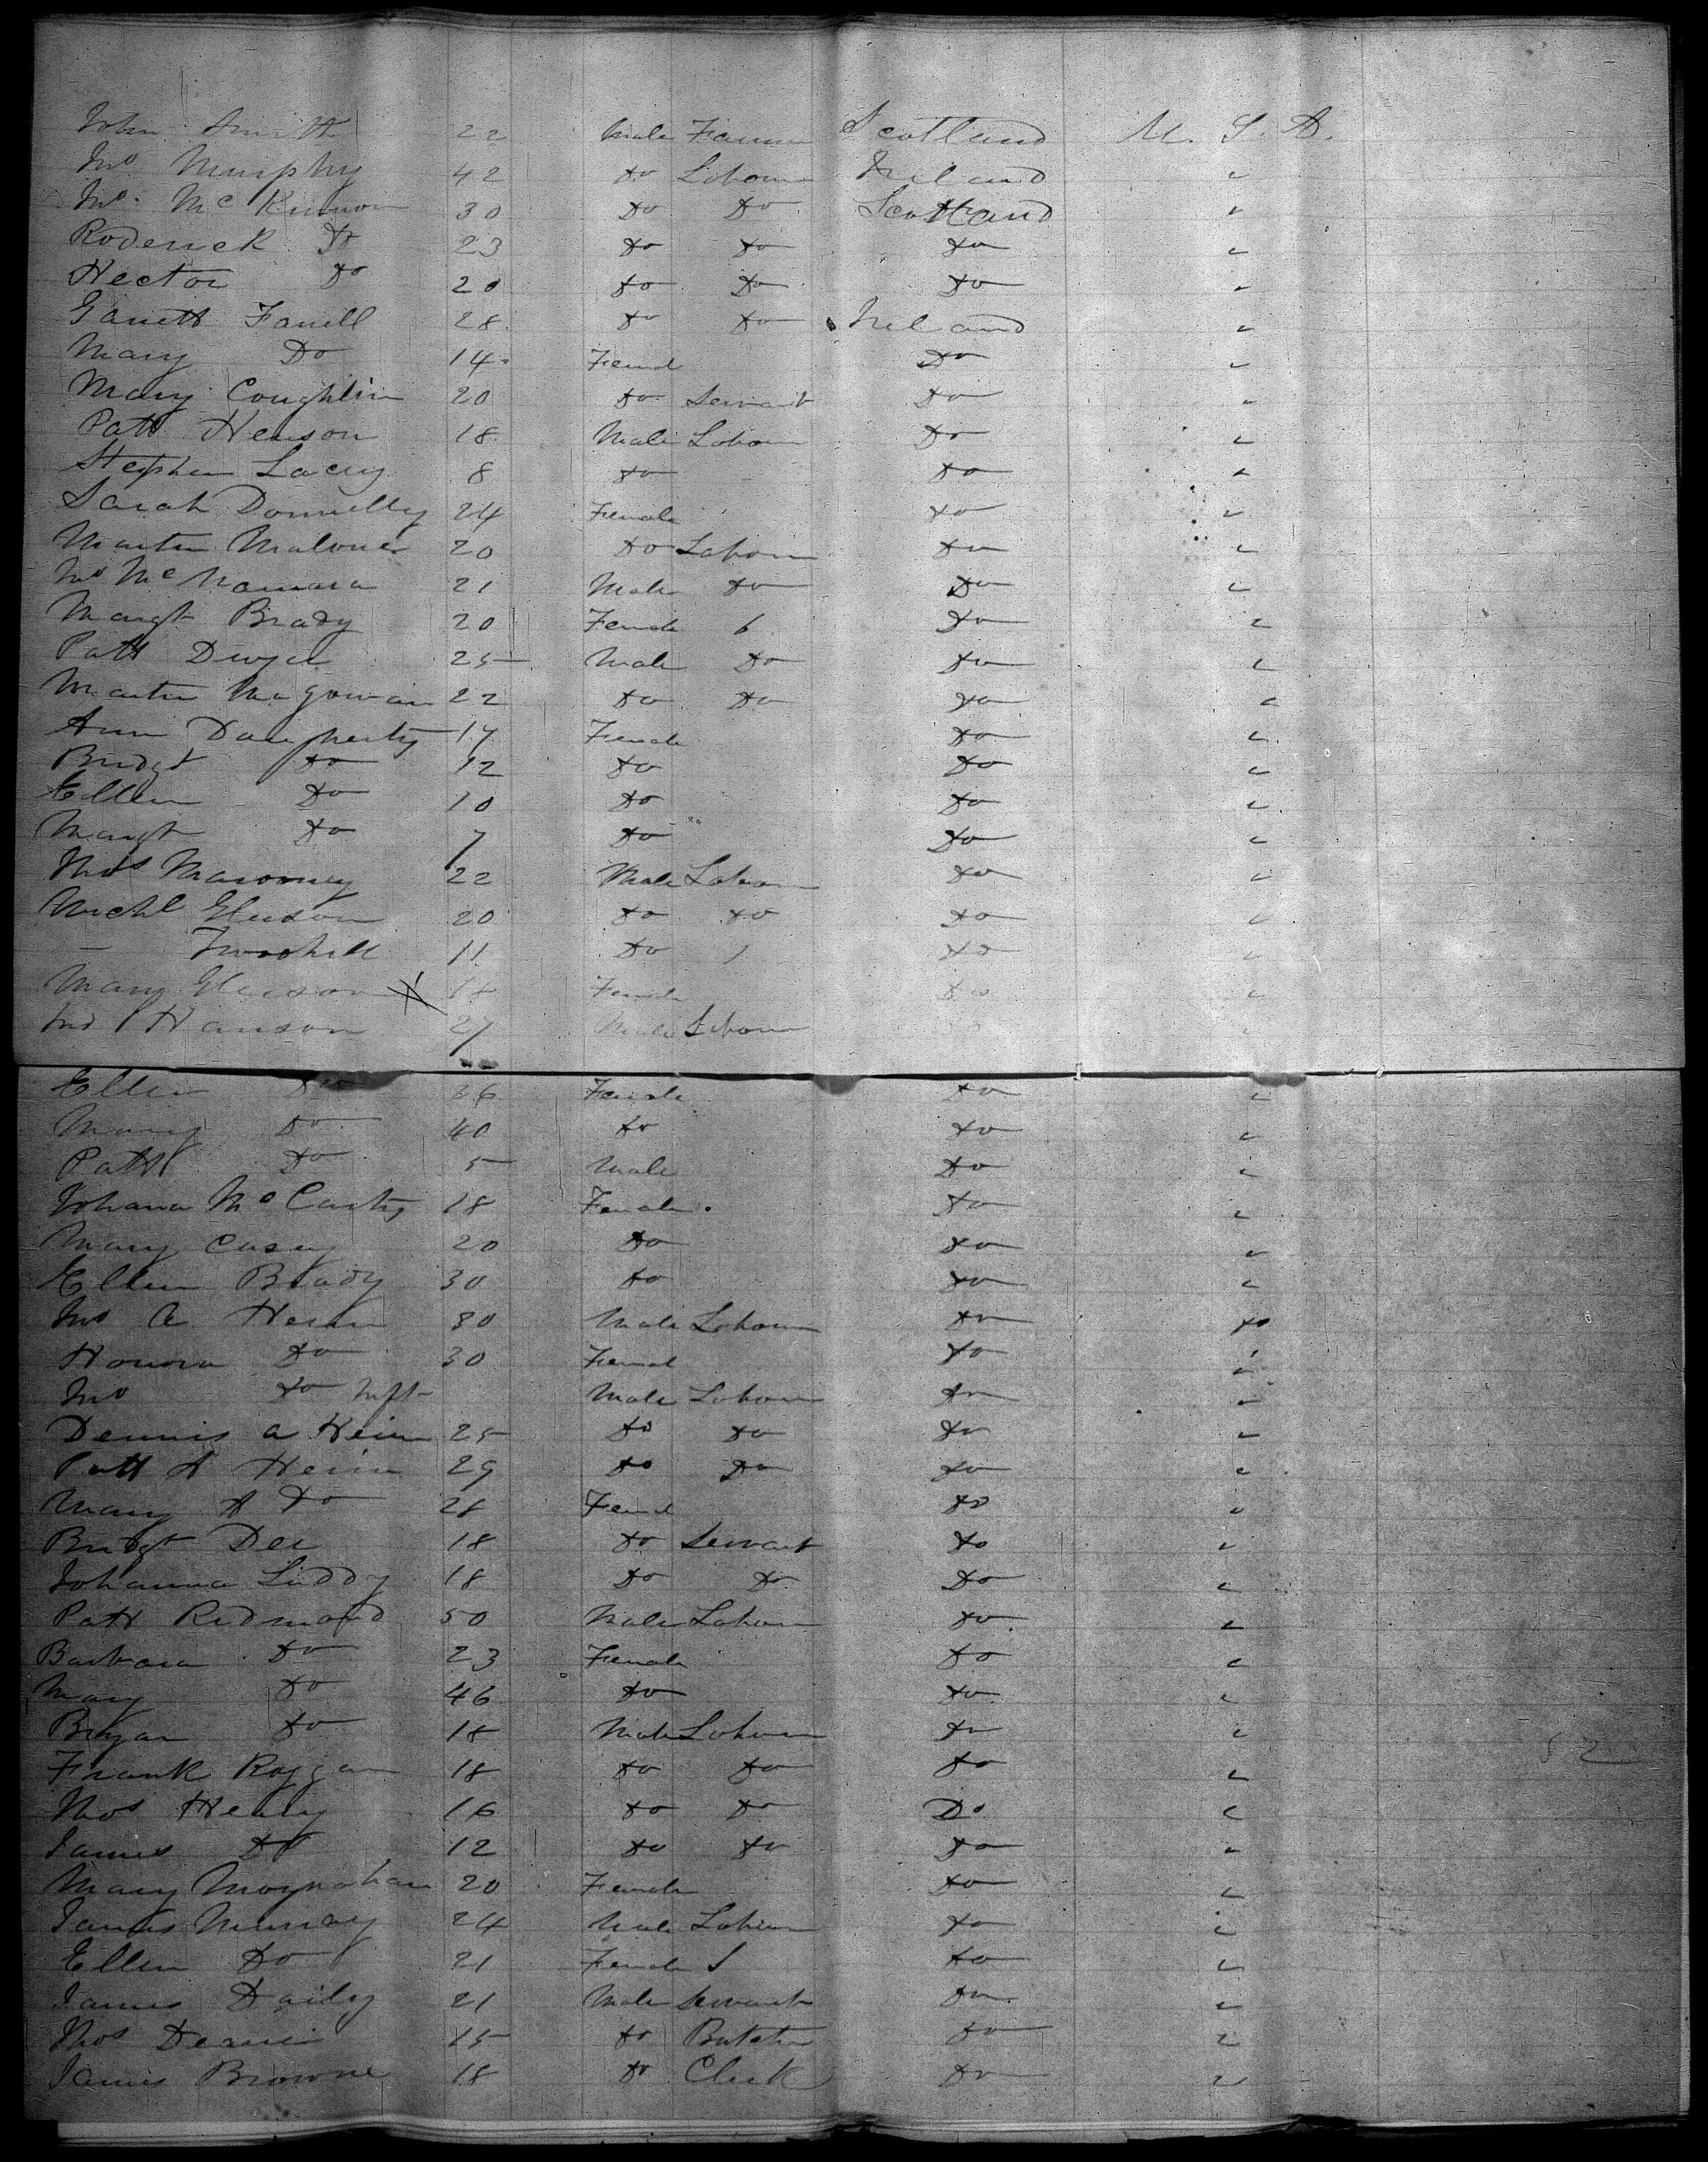 John Smith 22 Male Farmer Scotland U. S. A.
Jno Murphy 42 Do Labour Ireland "
Jno. McKinnon 30 Do Do Scotland "
Roderick Do 23 Do Do Do "
Hector Do 20 Do Do Do "
Garrett Farrell 28 Do Do Ireland "
Mary Do 14 Femal Do "
Mary Coughlin 20 Do Servant Do "
Patt Henson 18 Male Labour Do "
Stephen Lacey 8 Do Do "
Sarah Donnelly 24 Female Do "
Martin Malone 20 Do Labour Do "
Jno McNamara 21 Male Do Do "
Margt Brady 20 Female 6 Do "
Patt Dwyer 25 Male Do Do "
Martin McGowan 22 Do Do Do "
Ann Daugherty 17 Female Do "
Bridgt Do 12 Do Do "
Ellen Do 10 Do Do "
Margt Do 7 Do Do "
Thos Maroney 22 Male Labour Do "
Michl Gleeson 20 Do Do Do "
— 11 Do Do "
Mary Gleeson Female Do "
Jno Hanson 27 Male Labour Do "
Ellen Do 36 Female Do "
Mary Do 40 Do Do "
Patt Do 5 Male Do "
Johana McCarty 18 Female Do "
Mary Casey 20 Do Do "
Ellen Brady 30 Do Do "
Jno A. Herin 30 Male Labour Do Do
Honora Do 30 Femal Do "
Jno Do Inft Male Labour Do "
Dennis A Herin 25 Do Do Do "
Patt A Herin 29 Do Do Do "
Mary A Do 28 Femal Do "
Bridgt Dee 18 Do Servant Do "
Johanna Liddy 18 Do Do Do "
Patt Redmond 50 Male Labour Do "
Barbara Do 23 Female Do "
Mary Do 46 Do Do "
Bryan Do 18 Male Labour Do "
52
Frank Roggan 18 Do Do Do "
Thos Henry 16 Do Do Do "
James Do 12 Do Do Do "
Mary Moynahan 20 Female Do "
James Murray 24 Male Labour Do "
Ellen Do 21 Female Do "
James Daily 21 Male Servant Do "
Thos 15 Do Butcher Do "
James Browne 18 Do Clerk Do "